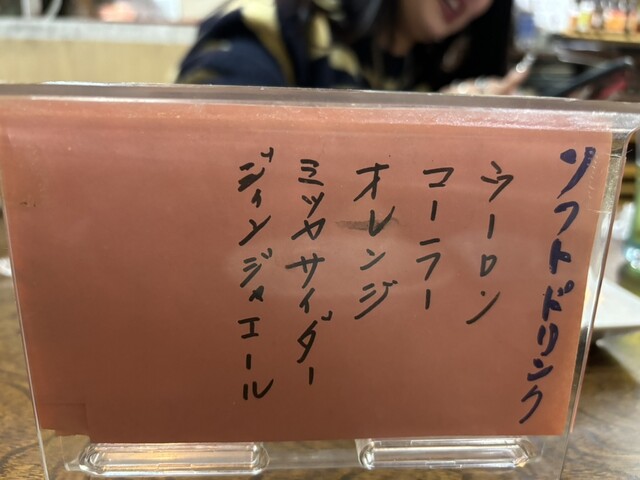 ソフトドリンク
ウーロン
コーラー
オレンジ
ミツヤサイダー
ジィンジャエール